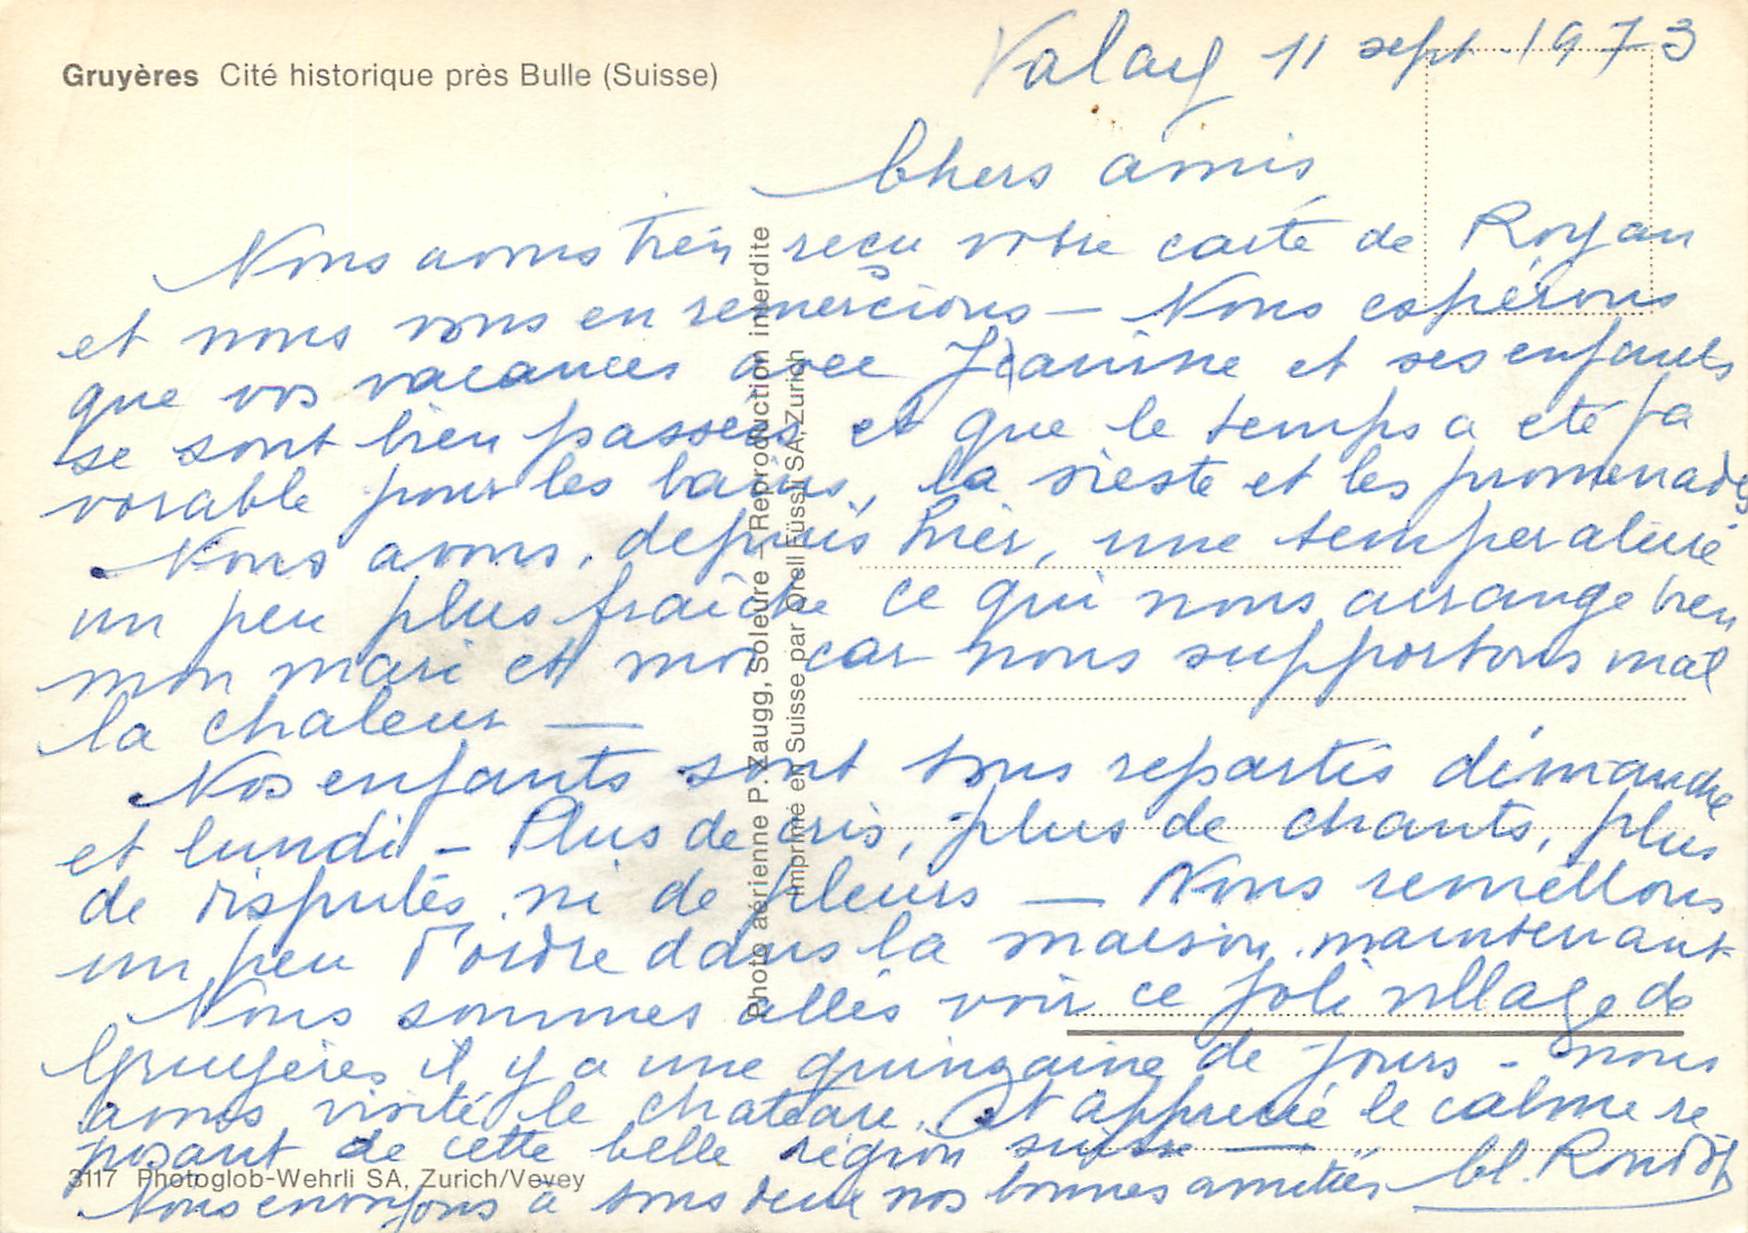 Gruyères Cité historique près Bulle (Suisse)
Valay 11 sept. 1973
Chers amis
Nous avons bien reçu votre carte de Royan
et nous vous en remercions — Nous espérons
que vos vacances avec Jeanine et ses enfants
se sont bien passées et que le temps a été fa
vorable pour les bains, la sieste et les promenades
Nous avons, depuis hier, une température
un peu plus fraîche ce qui nous arrange bien
mon mari et moi car nous supportons mal
la chaleur —
Nos enfants sont tous repartis dimanche
et lundi - Plus de cris, plus de chants, plus
de disputes ni de pleurs — Nous remettons
un peu d'ordre dans la maison maintenant
Nous sommes allés voir ce joli village de
Gruyères il y a une quinzaine de jours - nous
avons visité le chateau. Et apprécié le calme re
posant de cette belle région suisse —
Nous envoyons à tous deux nos bonnes amitiés
Photo aérienne P. Zaugg, Soleure – Reproduction interdite
Imprimé en Suisse par Orell Füssli SA, Zurich
3117 Photoglob-Wehrli SA, Zurich/Vevey